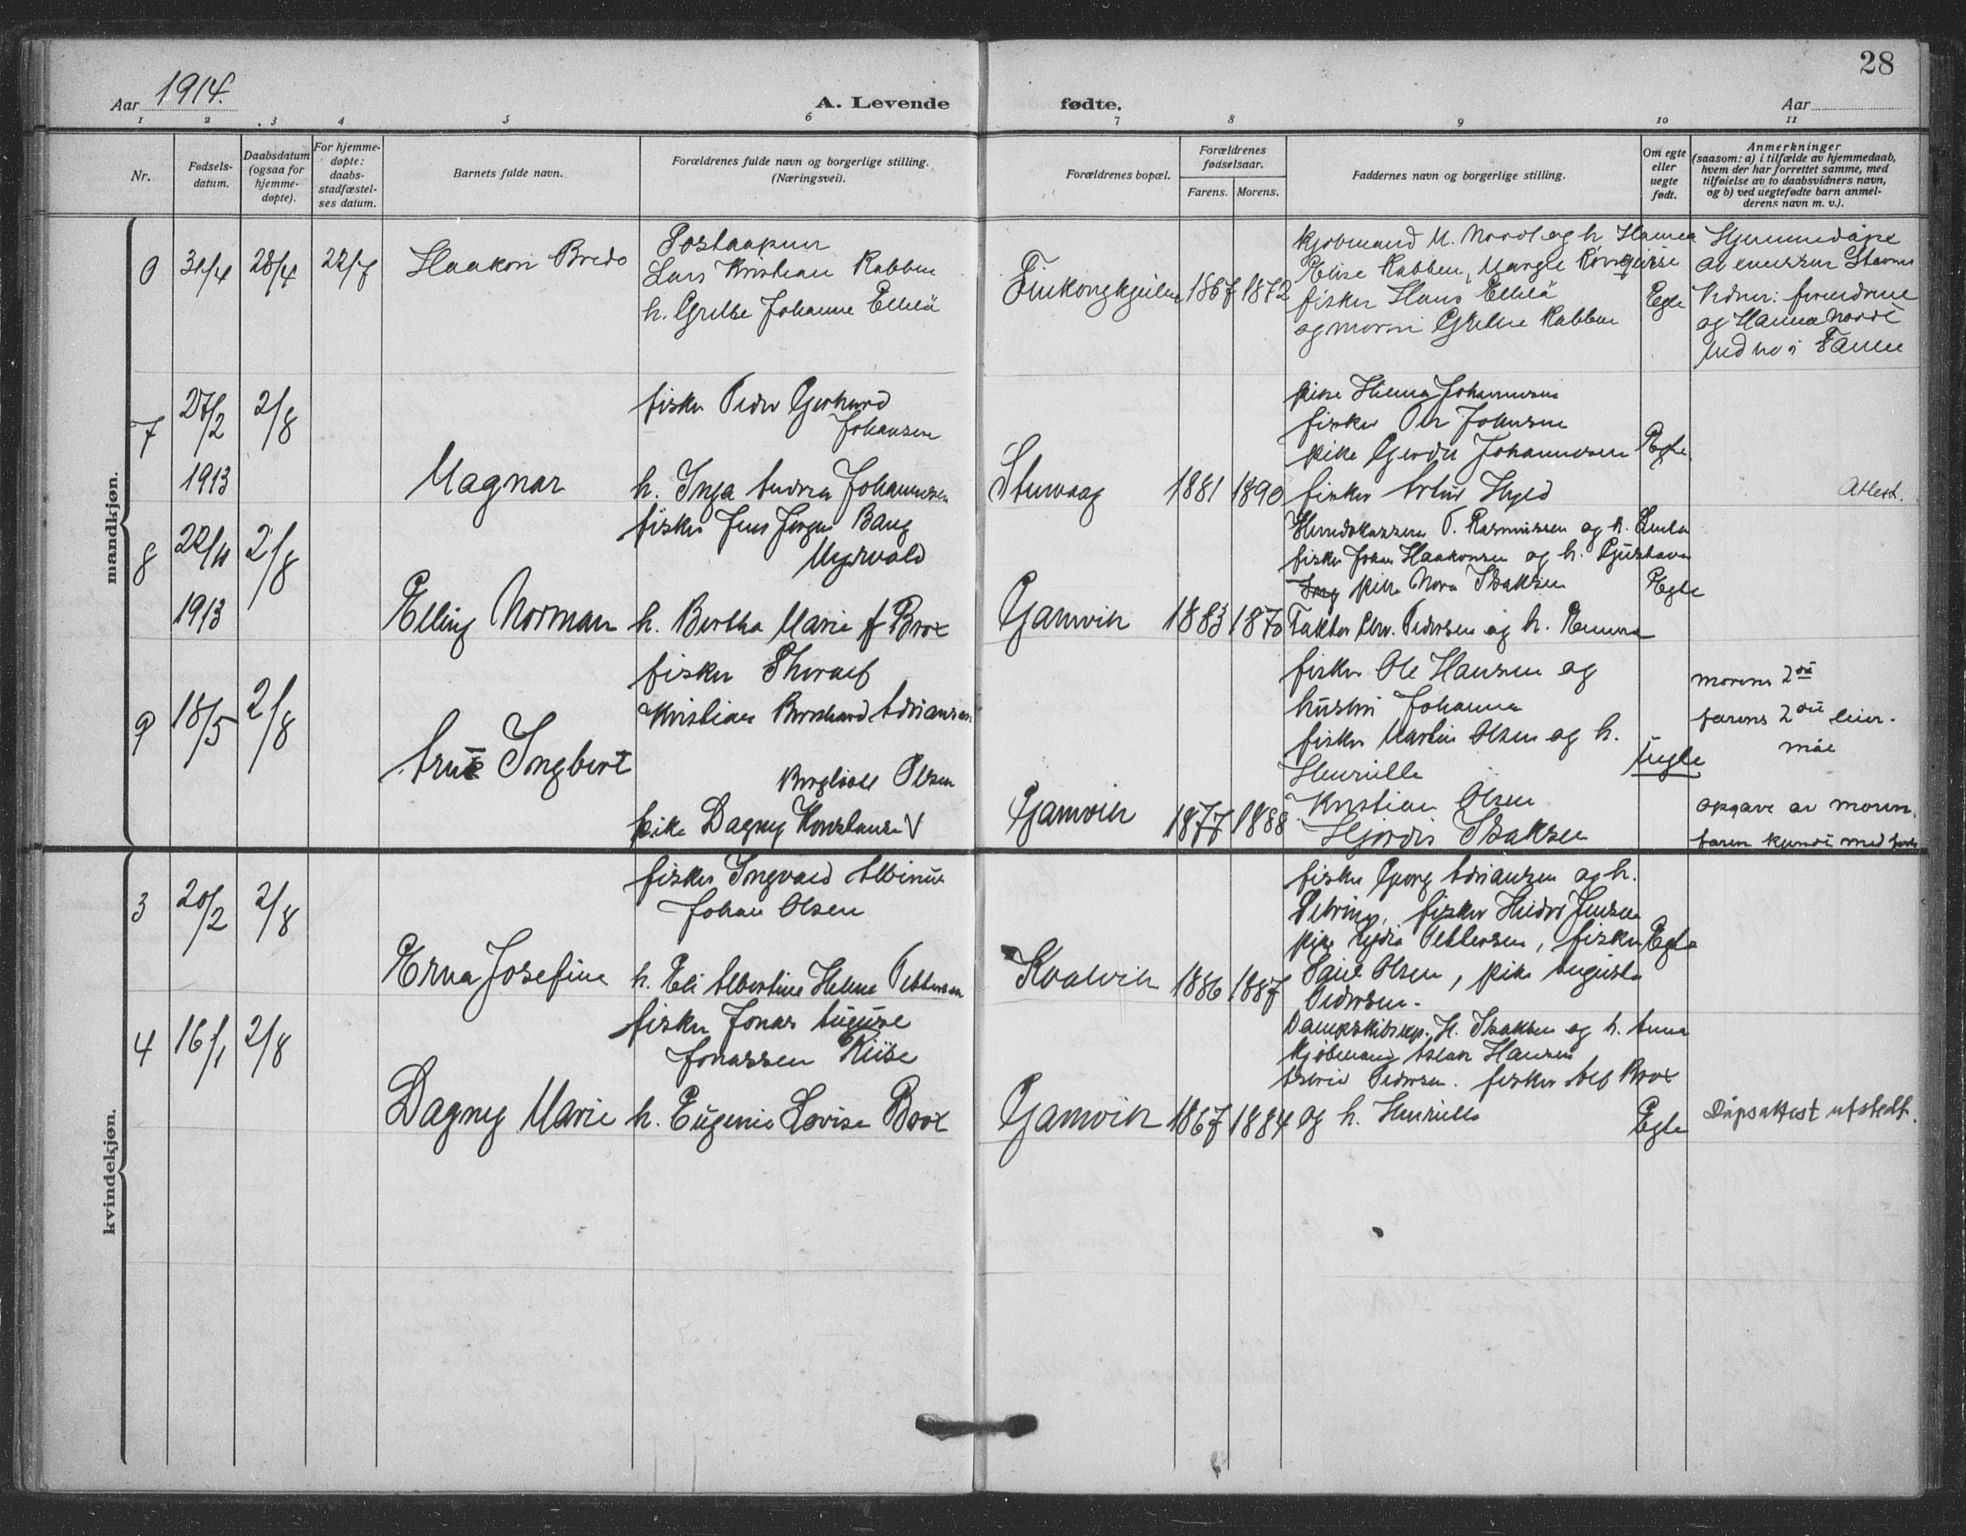 28
Aar 1914.
A. Levende fødte.
Aar
1 2 3 4 5 6 7 8 9 10 11
Nr.
Fødsels-
datum.
Daabsdatum
(ogsaa for
hjemme-
døpte).
For hjemme-
døpte:
daabs-
stadfæstel-
ses datum.
Barnets fulde navn.
Forældrenes fulde navn og borgerlige stilling.
(Næringsvei).
Forældrenes bopæl.
Forældrenes
fødselsaar.
Farens. Morens.
Faddernes navn og borgerlige stilling.
Om egte
eller
uegte
født.
Anmerkninger
(saasom: a) i tilfælde av hjemmedaab,
hvem der har forrettet samme, med
tilføielse av to daabsvidners navn,
og b) ved uegtefødte barn anmel-
derens navn m. v.).
mandkjøn.
28/4 22/7
Haakon Bredo
Lars Kristian Rabben
h. Grethe Johanne
Finkongkjeilen 1867 1872
kjøbmand M. Nordt og h. Hanna
Elise Rabben,
fisker Hans
og moren Grethe Rabben
Egte
Hjemmedøpt
av
Vidner: forældrene
og Hanna Nordt
7 27/2 2/8
1913
Magnar
fisker Peder Gerhard
Johansen
h. Inga Andrea Johannesen
1881 1890
pike Helma Johannesen
fisker Per Johnsen
pike Gerda Johannesen
fisker Artur
Egte.
Attest.
8 22/11 2/8
1913
Elling Norman
fisker Jens Jørgen Bang
Myrvold
h. Bertha Marie f Brox
Gamvik 1883 1870
P. Rasmussen og h.
fisker Johan Haakonsen og h. Gustava
pike Nora Isaksen
Pedersen og h.
Egte
9 18/5 2/8
Arnt Ingbert
fisker Thoralf
Kristian Bernhard Adriansen
Olsen
pike Dagny Konstanse V
Gamvik 1877 1888
fisker Ole Hansen og
hustru Johanna
fisker Martin Olsen og h.
Henriette
Kristian Olsen
Hjørdis Isaksen
Uegte
morens 2det
farens 2det leier-
maal
opgave av moren.
faren kjendt med
kvindekjøn.
3 20/2 2/8
Erna Josefine
fisker Ingvald Albinus
Johan Olsen
h. Eli Albertine Helene Pettersen
Kvalvik 1886 1887
fisker Georg Adriansen og h.
Petrine, fisker Jensen
pike Lydia Pettersen, fisker
Olsen, pike Augusta
Pedersen.
Egte
4 16/1 2/8
Dagny Marie
fisker Jonas August
Jonassen Riise
h. Eugenie Lovise Brox
Gamvik 1867 1884
Dampskibsexp. H. Isaksen og h. Anna
kjøbmand Aslak Hansen
Pedersen. fisker Alf Brox
og h. Henriette
Egte
Dåpsattest utstedt.